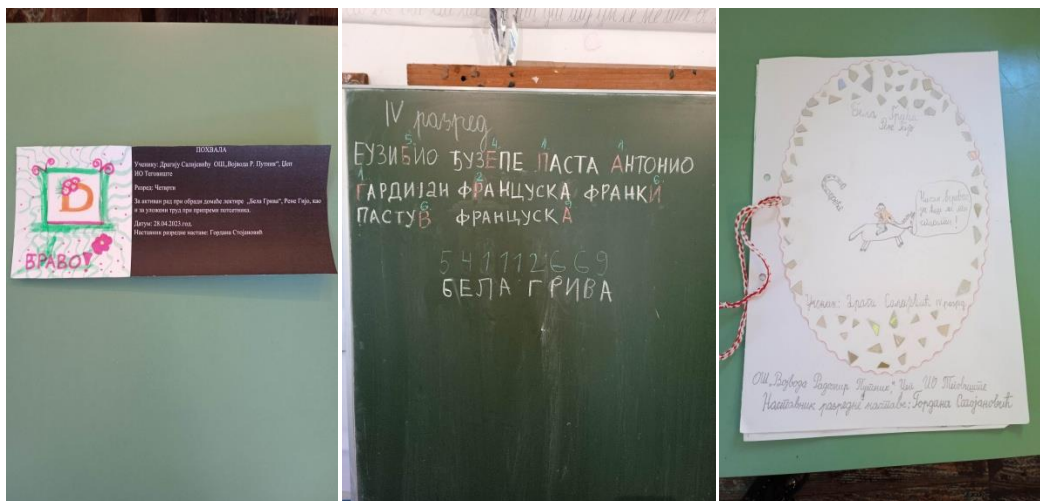 ПОХВАЛА
Ученику: Драгиу Салијевићу ОШ„Војвода Р. Путник“, Џеп
ИО Теговиште
Разред: Четврти
За активан рад при обради домаће лектире „Бела Грива“, Рене Гија, као
и за уложени труд при припреми
Датум: 28.04.2023.год.
Наставник разредне наставе: Гордана Стојановић
D
БРАВО!
IV разред
5 4 1 1
ЕУЗИБИО ЂУЗЕПЕ ПАСТА АНТОНИО
1 2 6
ГАРДИЈАН ФРАНЦУСКА ФРАНКИ
6 9
ПАСТУВ ФРАНЦУСКА
5 4 1 1 1 2 6 6 9
БЕЛА ГРИВА
Бела Грива
Рене Гијо
Ученик: Драги IV разред
ОШ„Војвода Радомир Путник“, Џеп ИО Теговиште
Наставник разредне наставе: Гордана Стојановић